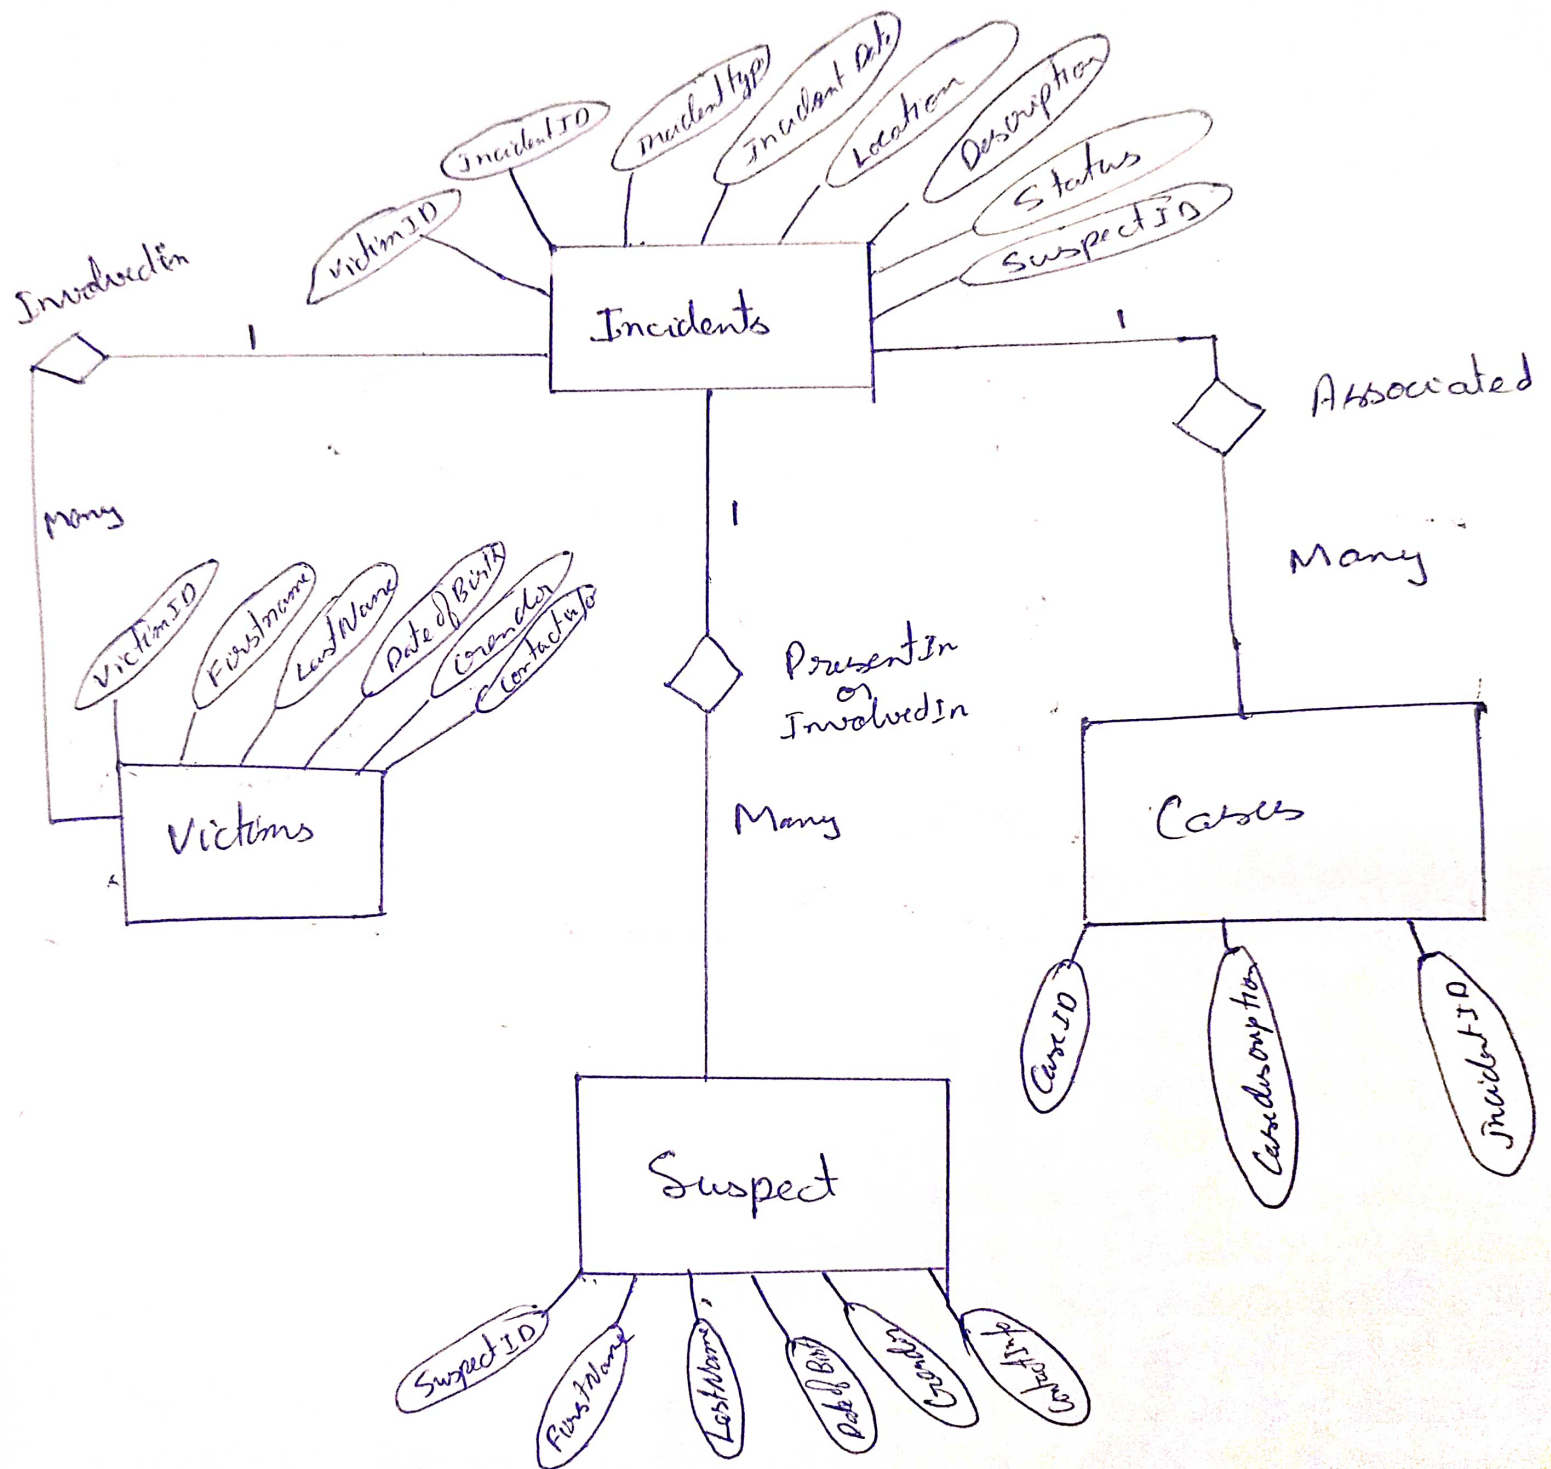 IncidentID
Incidenttype
Incident Date
Location
Description
Status
SuspectID
VictimID
Involvedin
Incidents
1
1
Associated
Many
1
Many
VictimID
Firstname
LastName
Date of Birth
Gender
Contactinfo
PresentIn
or
InvolvedIn
Many
Victims
Cases
CaseID
Casedescription
incidentID
Suspect
SuspectID
FirstName
LastName
Date of Birt
Gender
ContactInfo